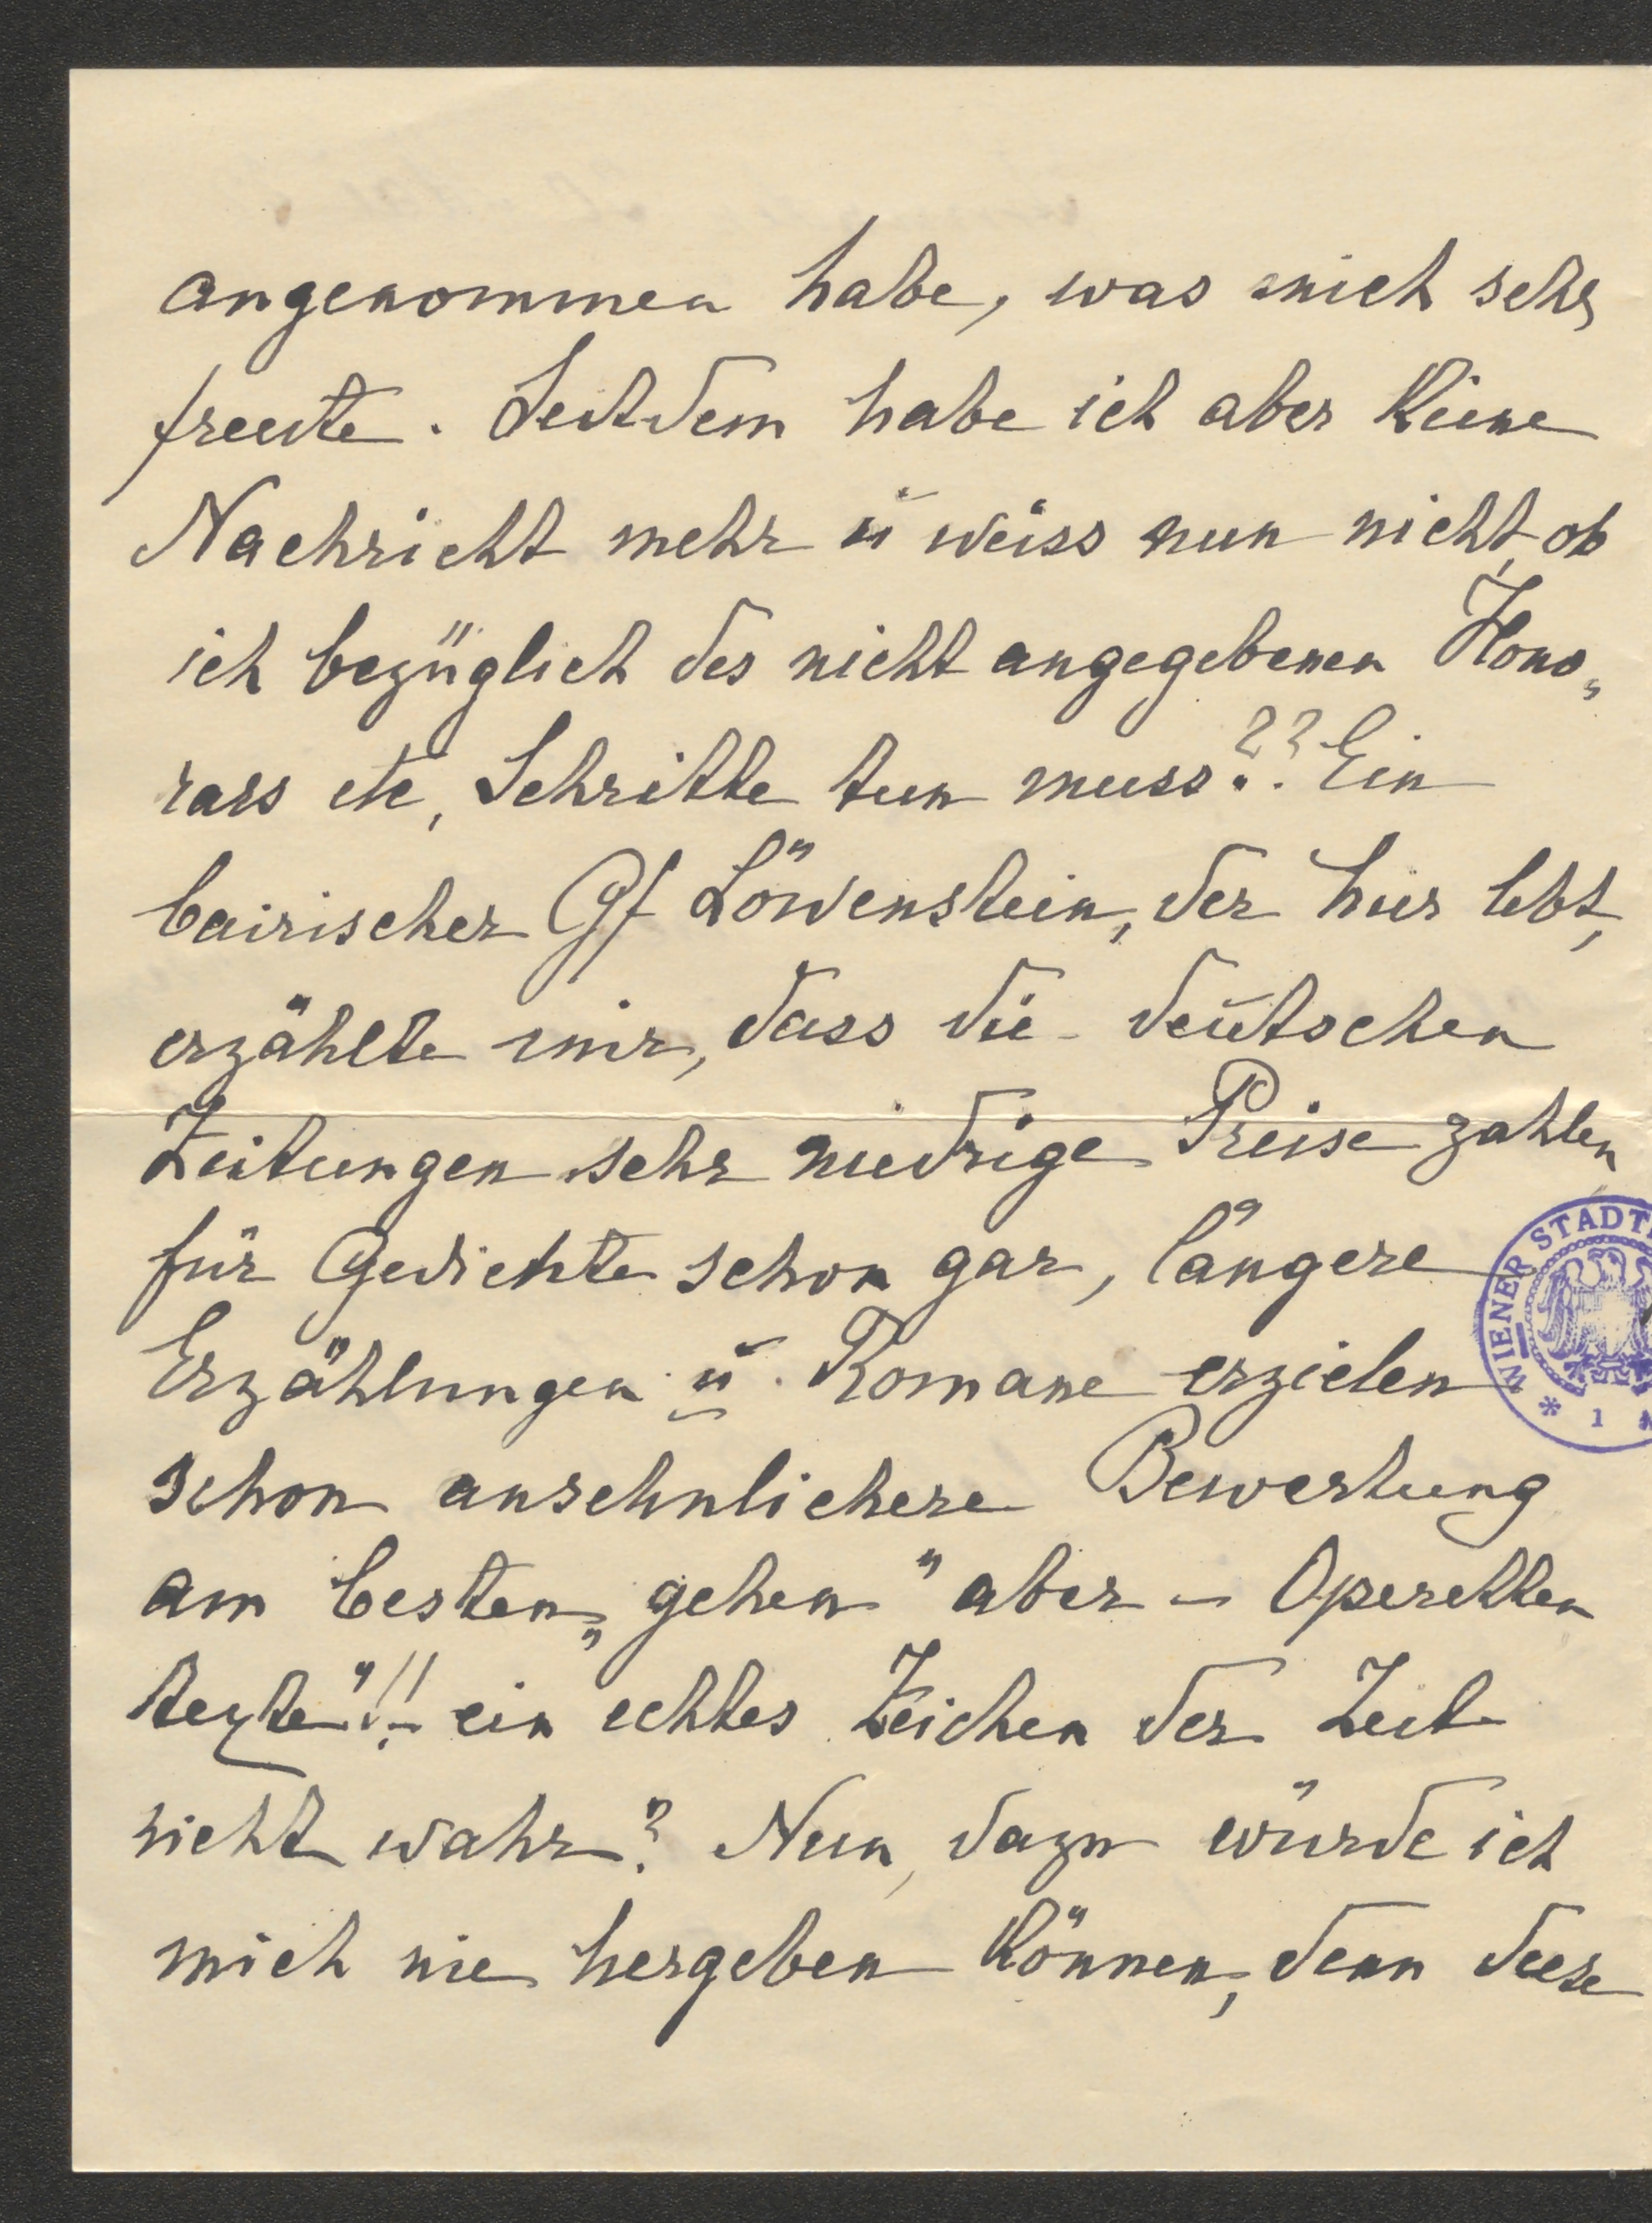 angenommen habe, was mich sehr
freute. Seitdem habe ich aber keine
Nachricht mehr ü weiss nun nicht, ob
ich bezüglich des nicht angegebenen Hono„
rars etc, Schritte tun muss?? Ein
bairischer Gf Löwenstein, der hier lebt,
erzählte mir, dass die deutschen
Zeitungen sehr niedrige Preise zahlen
für Gedichte schon gar, längere
Erzählungen ü. Romane erzielen
schon ansehnlichere Bewertung
am besten „gehen" aber – Operetten
texte"!! ein echtes Zeichen der Zeit
nicht wahr? Nun, dazu würde ich
mich nie hergeben können, denn diese
WIENER STADT
* 1